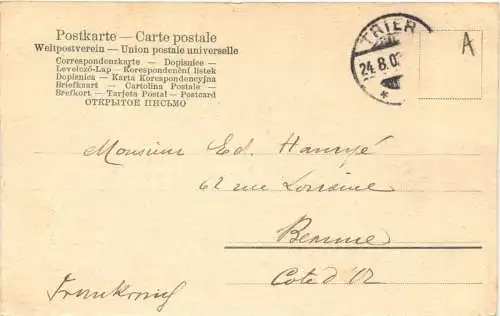 Postkarte — Carte postale
Weltpostverein — Union postale universelle
Correspondenzkarte — Dopisnice —
Levelező-Lap — Korespondenční listek
Dopisnica — Karta Korespondencyjna
Briefkaart — Cartolina Postale —
Brefkort — Tarjeta Postal — Postcard
ОТКРЫТОЕ ПИСЬМО
TRIER
24.8.0
*
A
Monsieur Ed.
62 rue Lorraine
Beaune
Cote d'Or
Frankreich